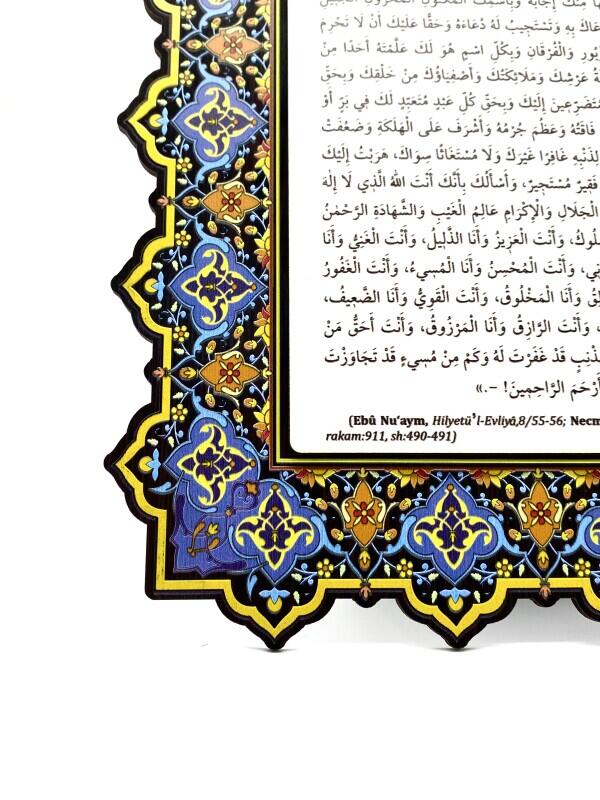 مِنْكَ إِجَابَةً وَبِاسْمِكَ الْمَكْنُونِ الْمَخْزُونِ الْجَلِيلِ
دَعَاكَ بِهِ وَتَسْتَجِيبُ لَهُ دُعَاءَهُ وَحَقًّا عَلَيْكَ أَنْ لَا تَحْرِمَ
وَالْفُرْقَانِ وَبِكُلِّ اسْمٍ هُوَ لَكَ عَلَّمْتَهُ أَحَدًا مِنْ
عَرْشِكَ وَمَلَائِكَتُكَ وَأَصْفِيَاؤُكَ مِنْ خَلْقِكَ وَبِحَقِّ
إِلَيْكَ وَبِحَقِّ كُلِّ عَبْدٍ مُتَعَبِّدٍ لَكَ فِي بَرٍّ أَوْ
فَاقَتُهُ وَعَظُمَ جُرْمُهُ وَأَشْرَفَ عَلَى الْهَلَكَةِ وَضَعُفَتْ
لِذَنْبِهِ غَافِرًا غَيْرَكَ وَلَا مُسْتَغَاثًا سِوَاكَ، هَرَبْتُ إِلَيْكَ
فَقِيرٌ مُسْتَجِيرٌ، وَأَسْأَلُكَ بِأَنَّكَ أَنْتَ اللهُ الَّذِي لَا إِلٰهَ
الْجَلَالِ وَالْإِكْرَامِ عَالِمُ الْغَيْبِ وَالشَّهَادَةِ الرَّحْمٰنُ
وَأَنْتَ الْعَزِيزُ وَأَنَا الذَّلِيلُ، وَأَنْتَ الْغَنِيُّ وَأَنَا
وَأَنْتَ الْمُحْسِنُ وَأَنَا الْمُسِيءُ، وَأَنْتَ الْغَفُورُ
وَأَنَا الْمَخْلُوقُ، وَأَنْتَ الْقَوِيُّ وَأَنَا الضَّعِيفُ،
وَأَنْتَ الرَّازِقُ وَأَنَا الْمَرْزُوقُ، وَأَنْتَ أَحَقُّ مَنْ
قَدْ غَفَرْتَ لَهُ وَكَمْ مِنْ مُسِيءٍ قَدْ تَجَاوَزْتَ
أَرْحَمَ الرَّاحِمِينَ! –.»
(Ebû Nu‘aym, Hilyetü’l-Evliyâ,8/55-56; Necm
rakam:911, sh:490-491)